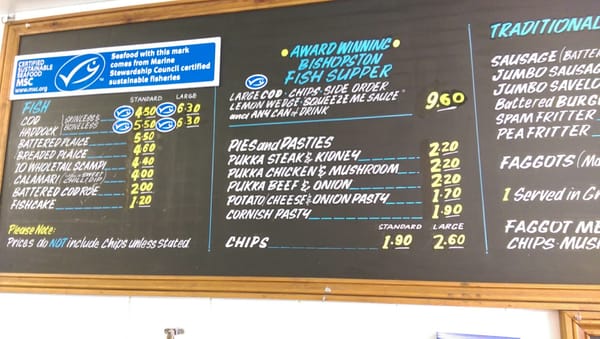 CERTIFIED
SUSTAINABLE
SEAFOOD
MSC
www.msc.org
Seafood with this mark
comes from Marine
Stewardship Council certified
sustainable fisheries
FISH STANDARD LARGE
COD SKINLESS & BONELESS 4.50 6.30
HADDOCK 5.50 6.30
BATTERED PLAICE 5.50
BREADED PLAICE 4.60
10 WHOLETAIL SCAMPI 4.40
CALAMARI 4.00
BATTERED COD ROE 2.00
FISHCAKE 1.20
Please Note:
Prices do NOT include Chips unless stated
AWARD WINNING
BISHOPSTON
FISH SUPPER
LARGE COD · CHIPS · SIDE ORDER
LEMON WEDGE · "SQUEEZE ME" SAUCE
and ANY CAN of DRINK 9.60
PIES and PASTIES
PUKKA STEAK & KIDNEY 2.20
PUKKA CHICKEN & MUSHROOM 2.20
PUKKA BEEF & ONION 2.20
POTATO CHEESE & ONION PASTY 1.70
CORNISH PASTY 1.90
STANDARD LARGE
CHIPS 1.90 2.60
TRADITIONAL
SAUSAGE (BATTER
JUMBO SAUSAG
JUMBO SAVELO
Battered BURG
SPAM FRITTER
PEA FRITTER
FAGGOTS (Ma
1 Served in Gr
FAGGOT ME
CHIPS · MUSH